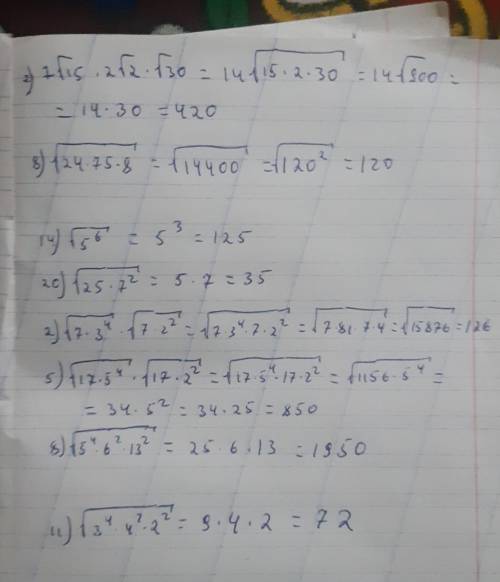 2) 7√15 · 2√2 · √30 = 14√15·2·30 = 14√900 =
= 14·30 = 420
8) √24·75·8 = √14400 = √120² = 120
14) √5⁶ = 5³ = 125
20) √25·7² = 5·7 = 35
2) √7·3⁴ · √7·2² = √7·3⁴·7·2² = √7·81·7·4 = √15876 = 126
5) √17·5⁴ · √17·2² = √17·5⁴·17·2² = √1156·5⁴ =
= 34·5² = 34·25 = 850
8) √5⁴·6²·13² = 25·6·13 = 1950
11) √3⁴·4²·2² = 9·4·2 = 72